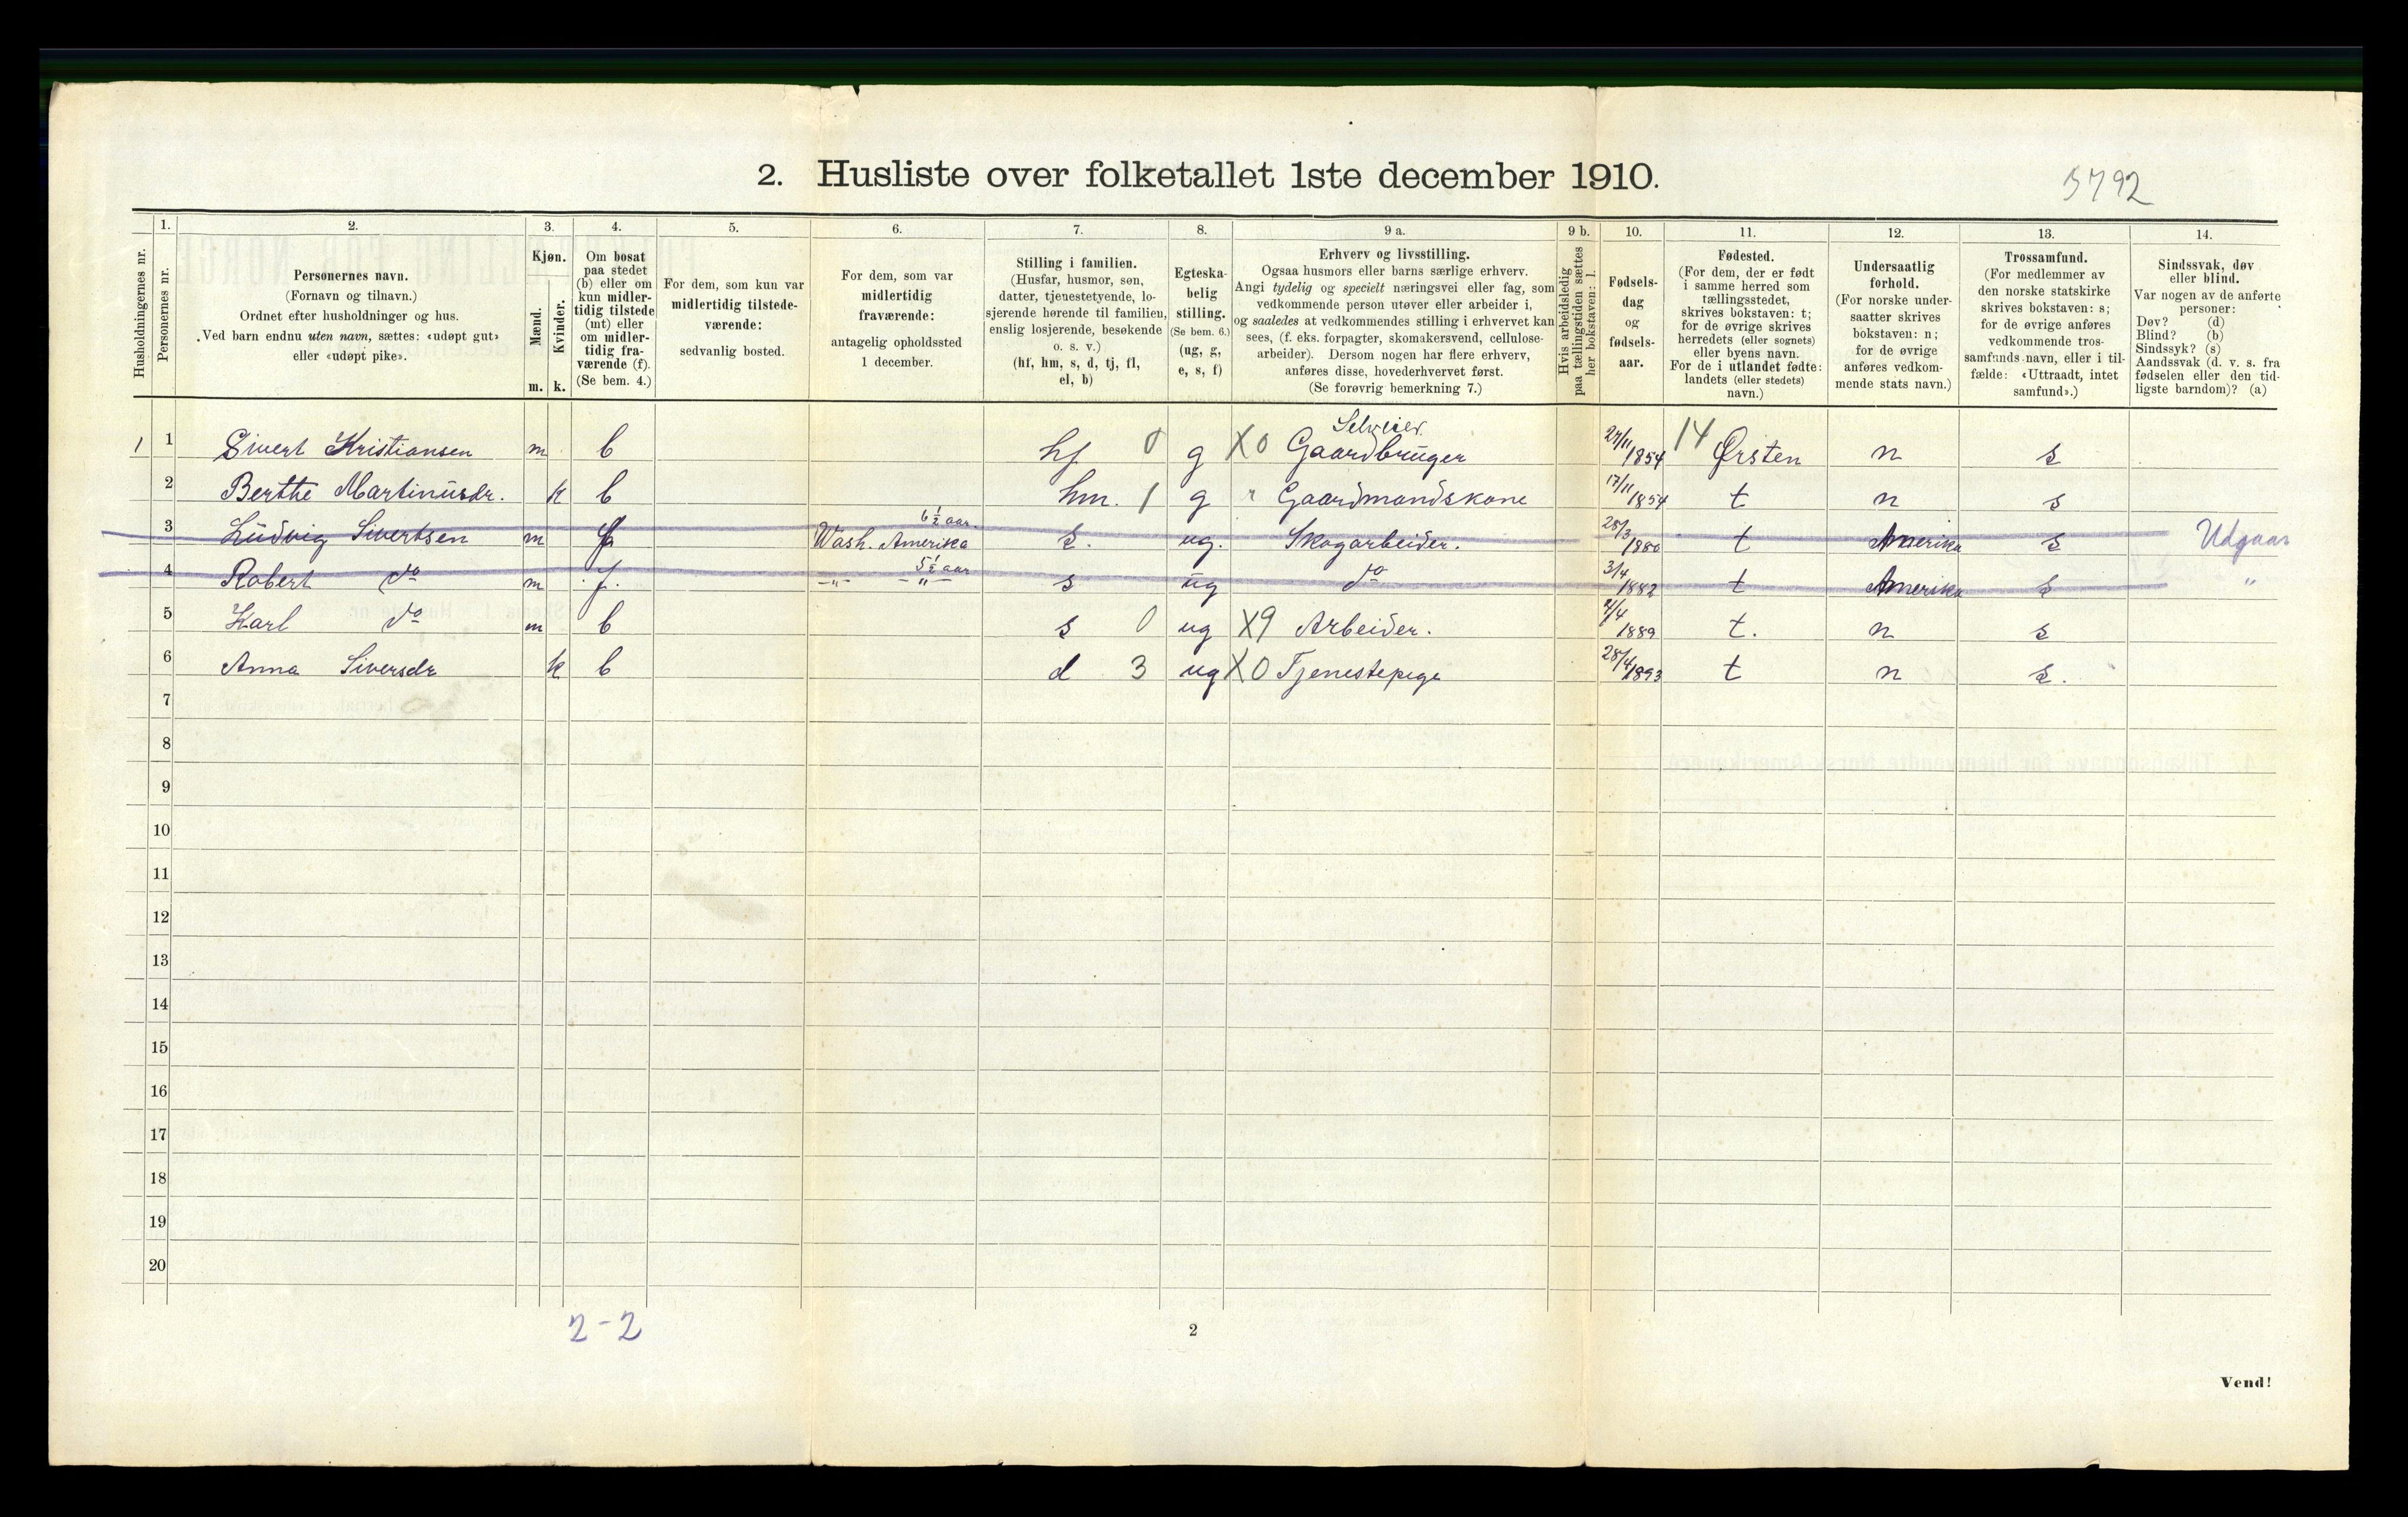 2. Husliste over folketallet 1ste december 1910.
5792
1.
2.
3.
4.
5.
6.
7.
8.
9 a.
9 b.
10.
11.
12.
13.
14.
Husholdningernes nr.
Personernes nr.
Personernes navn.
(Fornavn og tilnavn.)
Ordnet efter husholdninger og hus.
Ved barn endnu uten navn, sættes: «udøpt gut»
eller «udøpt pike».
Kjøn.
Mænd.
Kvinder.
m.
k.
Om bosat
paa stedet
(b) eller om
kun midler-
tidig tilstede
(mt) eller
om midler-
tidig fra-
værende (f).
(Se bem. 4.)
For dem, som kun var
midlertidig tilstede-
værende:
sedvanlig bosted.
For dem, som var
midlertidig
fraværende:
antagelig opholdssted
1 december.
Stilling i familien.
(Husfar, husmor, søn,
datter, tjenestetyende, lo-
sjerende hørende til familien,
enslig losjerende, besøkende
o. s. v.)
(hf, hm, s, d, tj, fl,
el, b)
Egteska-
belig
stilling.
(Se bem. 6.)
(ug, g,
e, s, f)
Erhverv og livsstilling.
Ogsaa husmors eller barns særlige erhverv.
Angi tydelig og specielt næringsvei eller fag, som
vedkommende person utøver eller arbeider i,
og saaledes at vedkommendes stilling i erhvervet kan
sees, (f. eks. forpagter, skomakersvend, cellulose-
arbeider). Dersom nogen har flere erhverv,
anføres disse, hovederhvervet først.
(Se forøvrig bemerkning 7.)
Hvis arbeidsledig
paa tællingstiden sættes
her bokstaven: l.
Fødsels-
dag
og
fødsels-
aar.
Fødested.
(For dem, der er født
i samme herred som
tællingsstedet,
skrives bokstaven: t;
for de øvrige skrives
herredets (eller sognets)
eller byens navn.
For de i utlandet fødte:
landets (eller stedets)
navn.)
Undersaatlig
forhold.
(For norske under-
saatter skrives
bokstaven: n;
for de øvrige
anføres vedkom-
mende stats navn.)
Trossamfund.
(For medlemmer av
den norske statskirke
skrives bokstaven: s;
for de øvrige anføres
vedkommende tros-
samfunds navn, eller i til-
fælde: «Uttraadt, intet
samfund».)
Sindssvak, døv
eller blind.
Var nogen av de anførte
personer:
Døv? (d)
Blind? (b)
Sindssyk? (s)
Aandssvak (d. v. s. fra
fødselen eller den tid-
ligste barndom)? (a)
Selveier
1 1 Sivert Kristiansen m b hf 0 g X0 Gaardbruger 1854 14 Ørsten n s
2 Berthe Martinusdr. k b hm. 1 g " Gaardmandskone 17/11 1854 t n s
6 ½ aar
3 Ludvig Sivertsen m f Wash. Amerika s. ug. Skogarbeider. 28/3 1880 t Amerika s Udgaar
5 ½ aar
4 Robert do m f. -"- -"- s ug do 3/4 1882 t Amerika s "
5 Karl do m b s 0 ug X9 Arbeider. 1889 t. n s
6 Anna Siversdr k b d 3 ug X0 Tjenestepige 28/4 1893 t n s.
7
8
9
10
11
12
13
14
15
16
17
18
19
20
2-2
2
Vend!